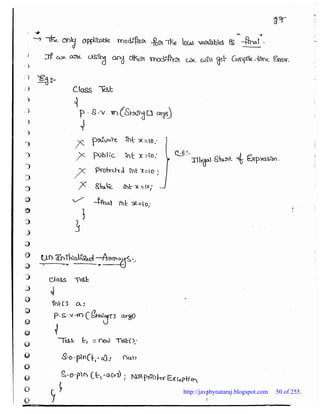 37
→ The only applicable modifier for the local variables is "final".
If we are using any other modifier we will get Compile-time Error.
Eg:-
Class Test
{
P.S.V.m(String[] args)
{
X private int x=10;
X public int x=10;
X Protected int x=10;
X Static int x=10;
C.E:- Illegal Start of Expression.
✓ final int x=10;
}
}
Un Initialized Arrays:-
class Test
{
int[] a;
P.S.V.m(String[] args)
{
Test t1 = new Test();
S.o.pln(t1.a); null
S.o.pln(t1.a[0]); NullPointerException
}
}
http://javabynataraj.blogspot.com 50 of 255.